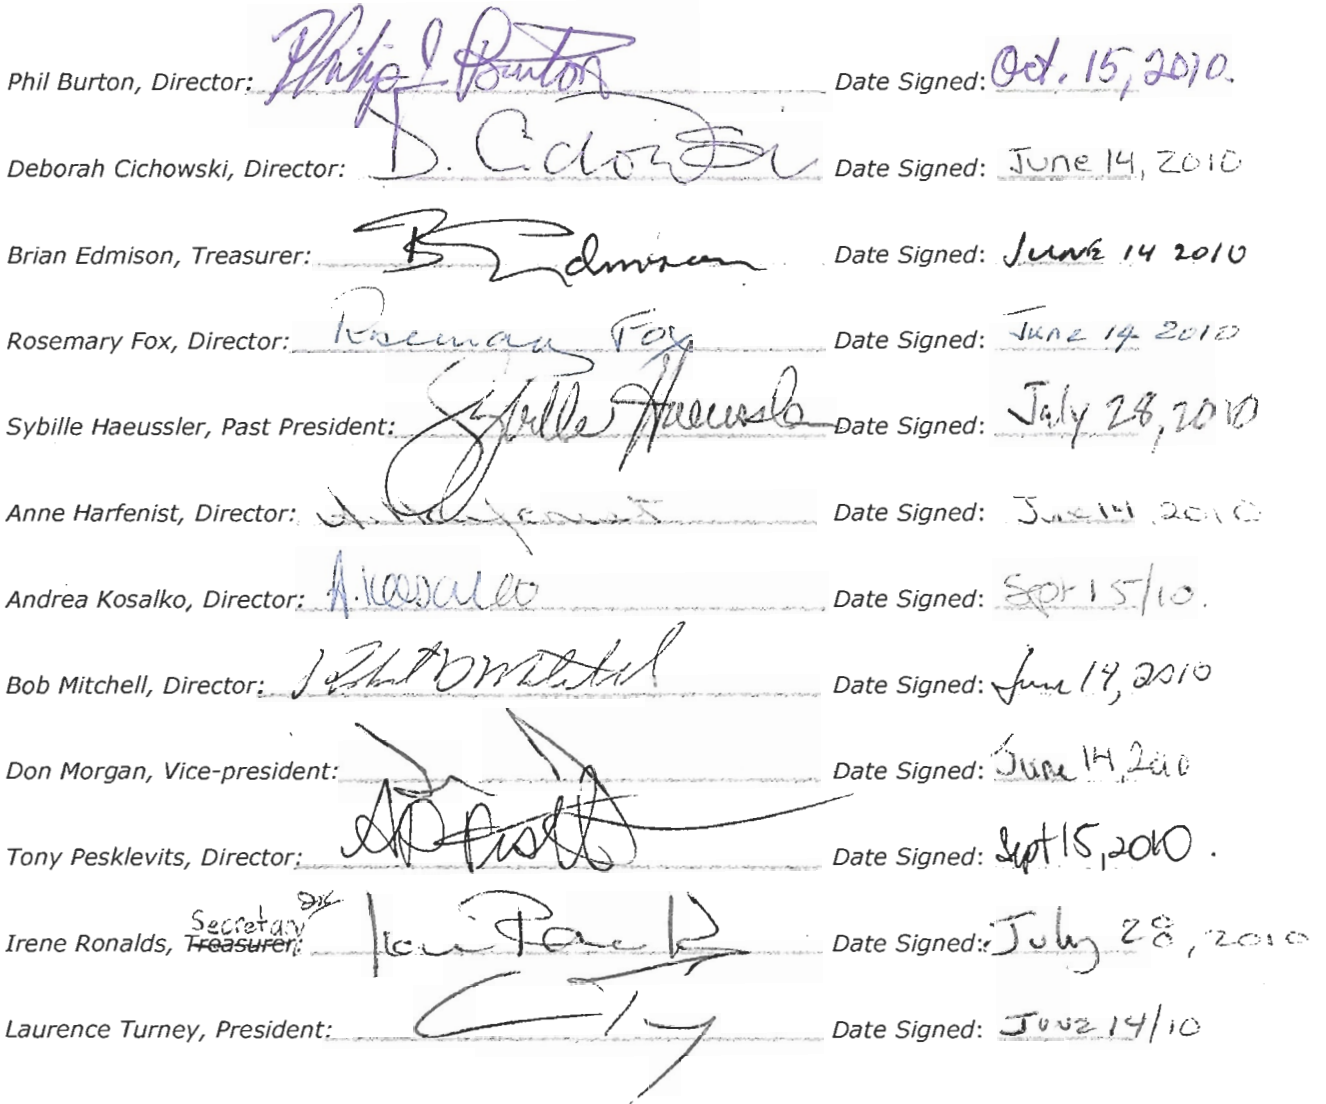 Phil Burton, Director: Philip I Burton Date Signed: Oct. 15, 2010.
Deborah Cichowski, Director: D. Cichowski Date Signed: June 14, 2010
Brian Edmison, Treasurer: B Edmison Date Signed: JUNE 14 2010
Rosemary Fox, Director: Rosemary Fox Date Signed: June 14 2010
Sybille Haeussler, Past President: Sybille Haeussler Date Signed: July 28, 2010
Anne Harfenist, Director: A. Harfenist Date Signed: June 14, 2010
Andrea Kosalko, Director: A. Kosalko Date Signed: Sept 15/10.
Bob Mitchell, Director: Mitchell Date Signed: June 14, 2010
Don Morgan, Vice-president: Date Signed: June 14, 2010
Tony Pesklevits, Director: Date Signed: Sept 15, 2010.
Irene Ronalds, Treasurer: Secretary Date Signed: July 28, 2010
Laurence Turney, President: Date Signed: June 14/10